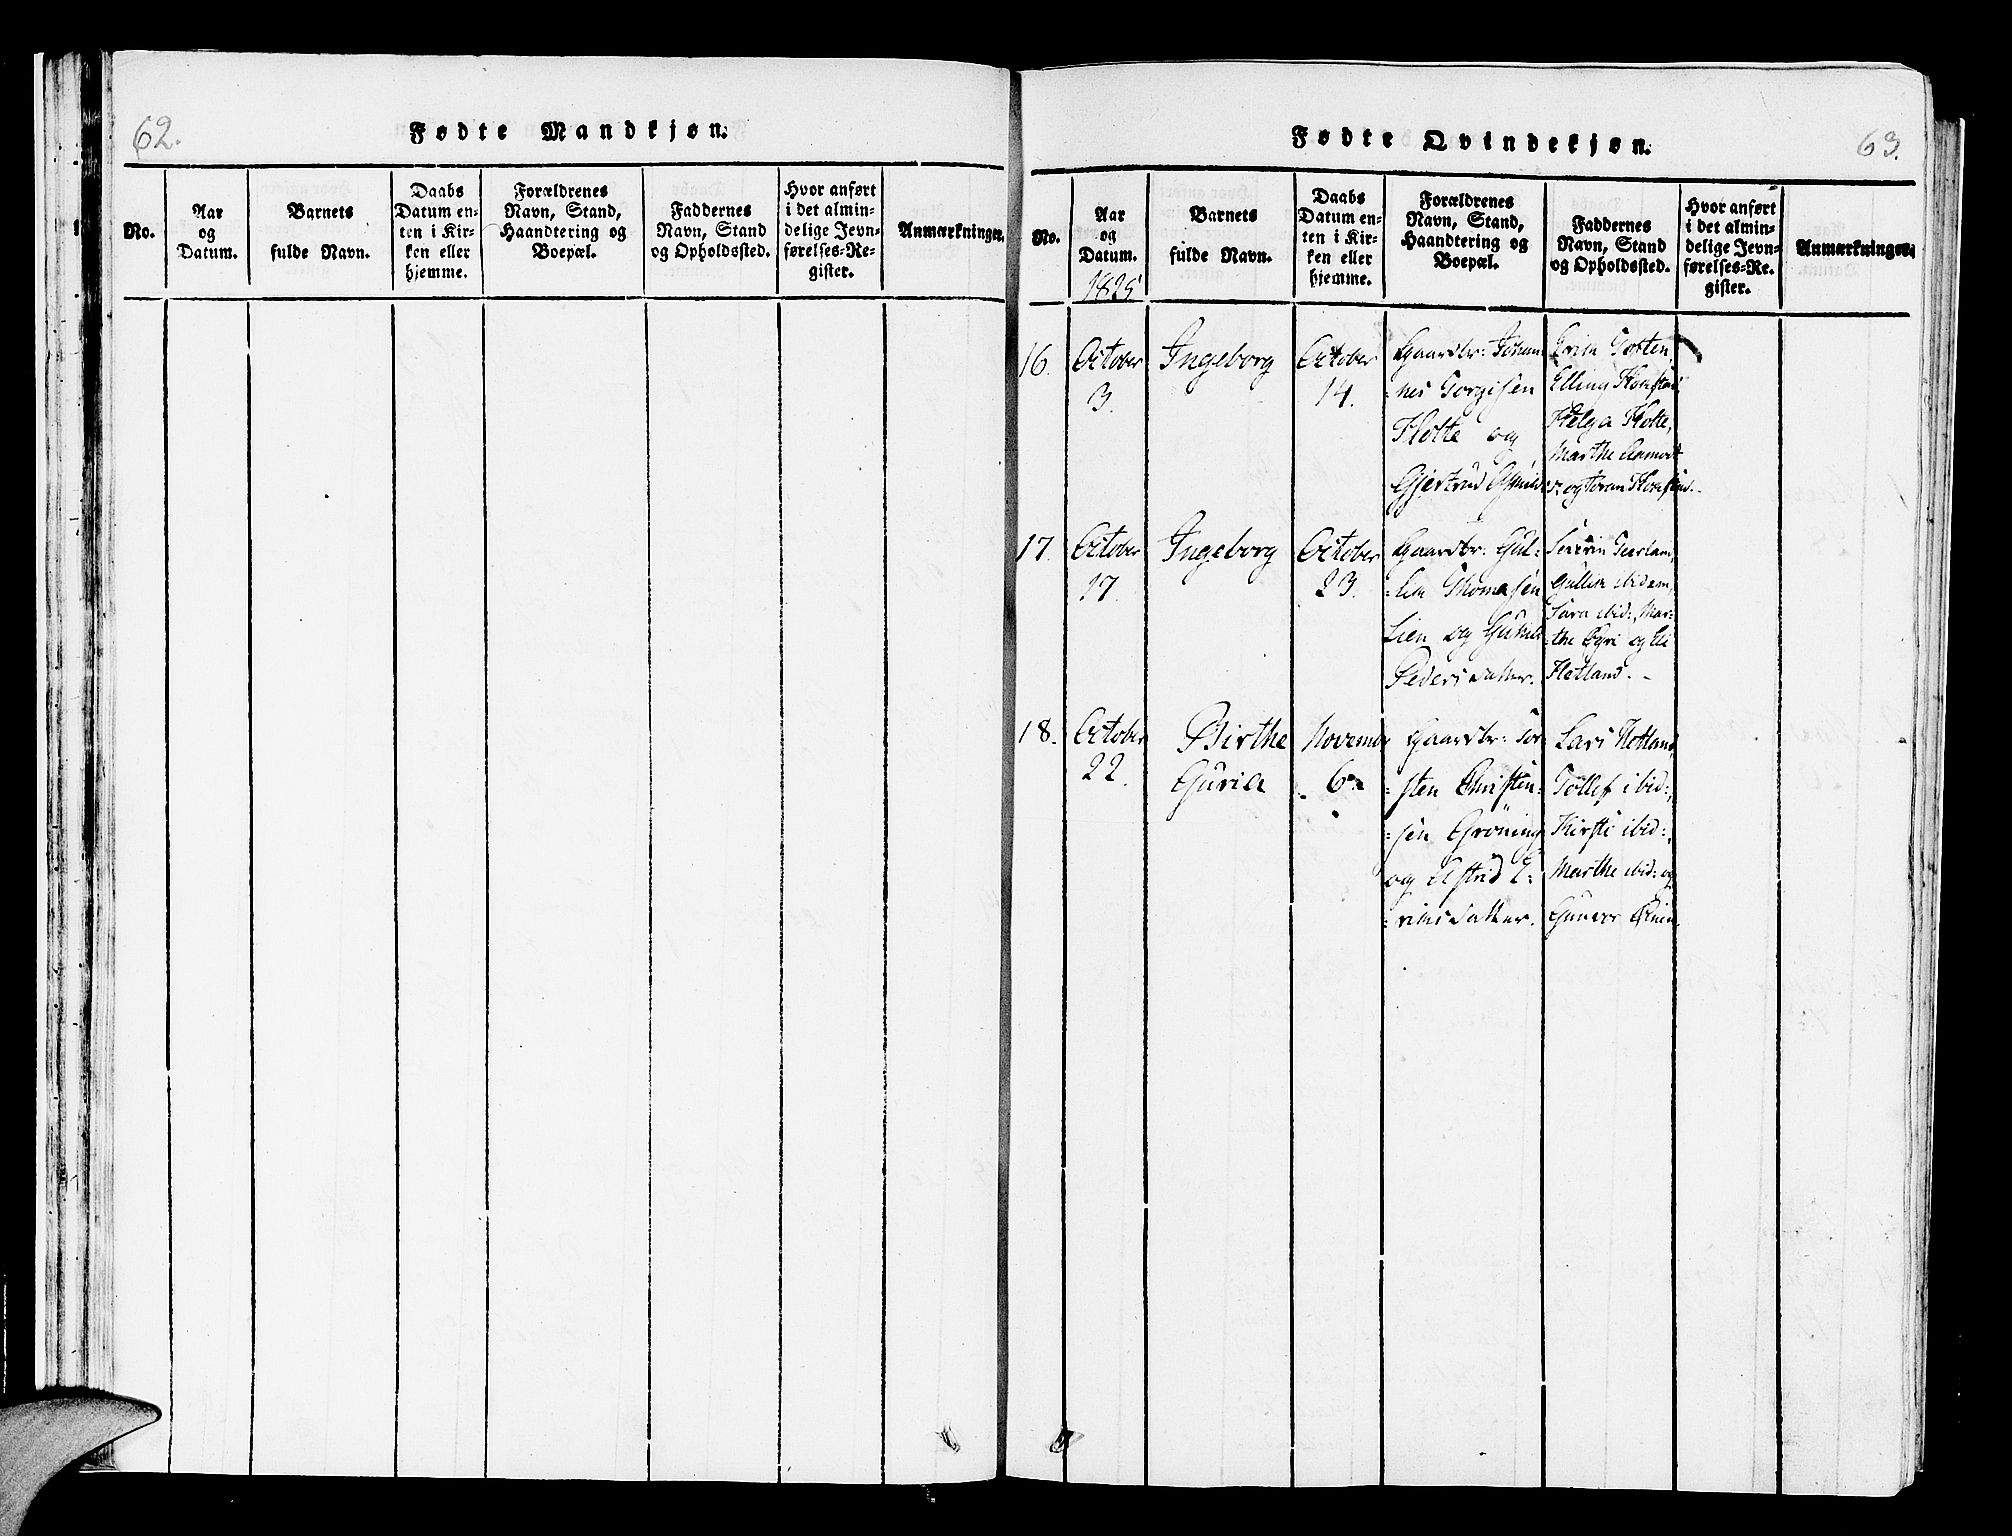 62.
Fødte Mandkjøn.
No.
Aar
og
Datum.
Barnets
fulde Navn.
Daabs
Datum en-
ten i Kir-
ken eller
hjemme.
Forældrenes
Navn, Stand,
Haandtering og
Boepæl.
Faddernes
Navn, Stand
og Opholdssted.
Hvor anført
i det almin-
delige Jevn-
førelses-Re-
gister.
Anmærkninger.
Fødte Qvindekjøn.
63.
No.
Aar
og
Datum.
1825
Barnets
fulde Navn.
Daabs
Datum en-
ten i Kir-
ken eller
hjemme.
Forældrenes
Navn, Stand,
Haandtering og
Boepæl.
Faddernes
Navn, Stand
og Opholdssted.
Hvor anført
i det almin-
delige Jevn-
førelses-Re-
gister.
Anmærkninger.
16.
October
3.
Ingeborg
October
14.
Gaardbr: Johan-
=nes Torgisen
og
Gjertrud
Elling
Helga
Marthe
17.
October
17.
Ingeborg
October
23.
Gaardbr: Gul=
=lik Thomasen
Lien og
Peders datter.
Gullik ibidem,
Sara ibid:, Mar=
=the Øyri og Eli
Hetland. -
18.
October
22.
Birthe
Guria
November
6
Gaardbr: Tor=
=sten Christen=
=sen Grøning
og Astrid E=
=riks datter.
Lars Hetland,
Tollef ibid:,
Kirsti ibid:,
Marthe ibid: og
Gunvor